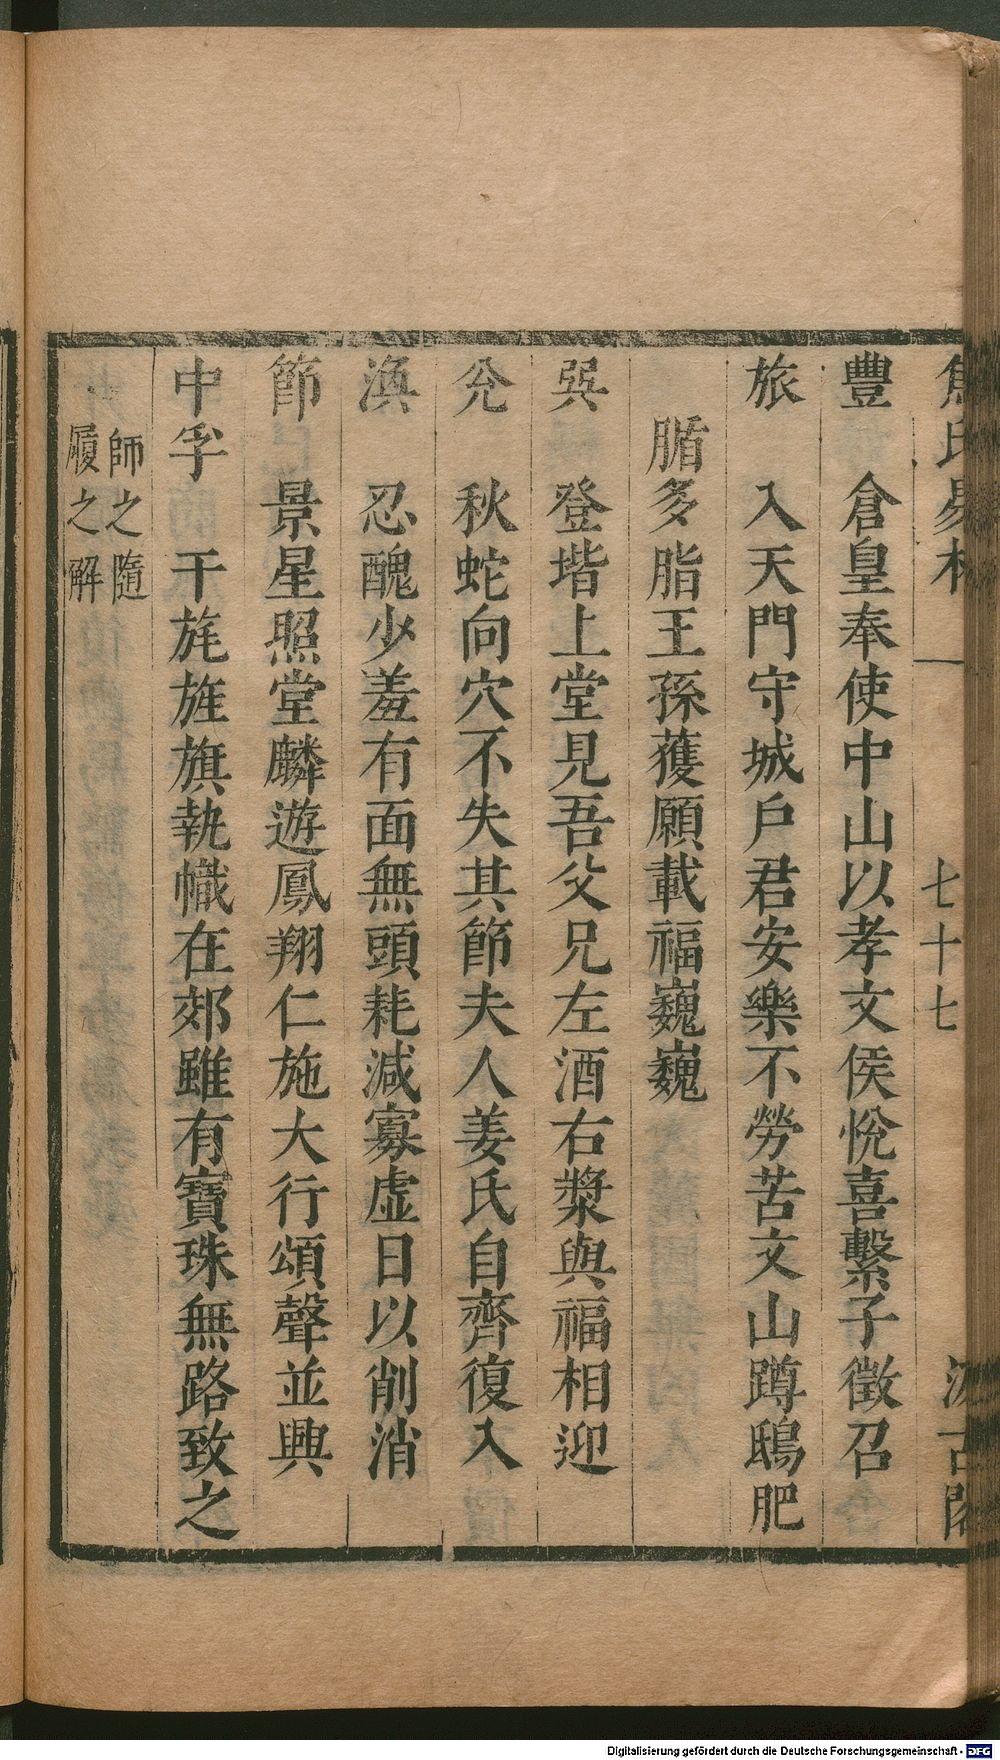 焦氏易林 一 七十七 汲古閣
豐 倉皇奉使中山以孝文侯悅喜繫子徵召
旅 入天門守城戶君安樂不勞苦文山蹲鴟肥
腯多脂王孫獲願載福巍巍
巽 登堦上堂見吾父兄左酒右漿與福相迎
兊 秋蛇向穴不失其節夫人姜氏自齊復入
渙 忍醜少羞有面無頭耗減寡虛日以削消
節 景星照堂麟遊鳳翔仁施大行頌聲並興
中孚 干旄旌旗執幟在郊雖有寶珠無路致之
師之隨
履之解
Digitalisierung gefördert durch die Deutsche Forschungsgemeinschaft - DFG